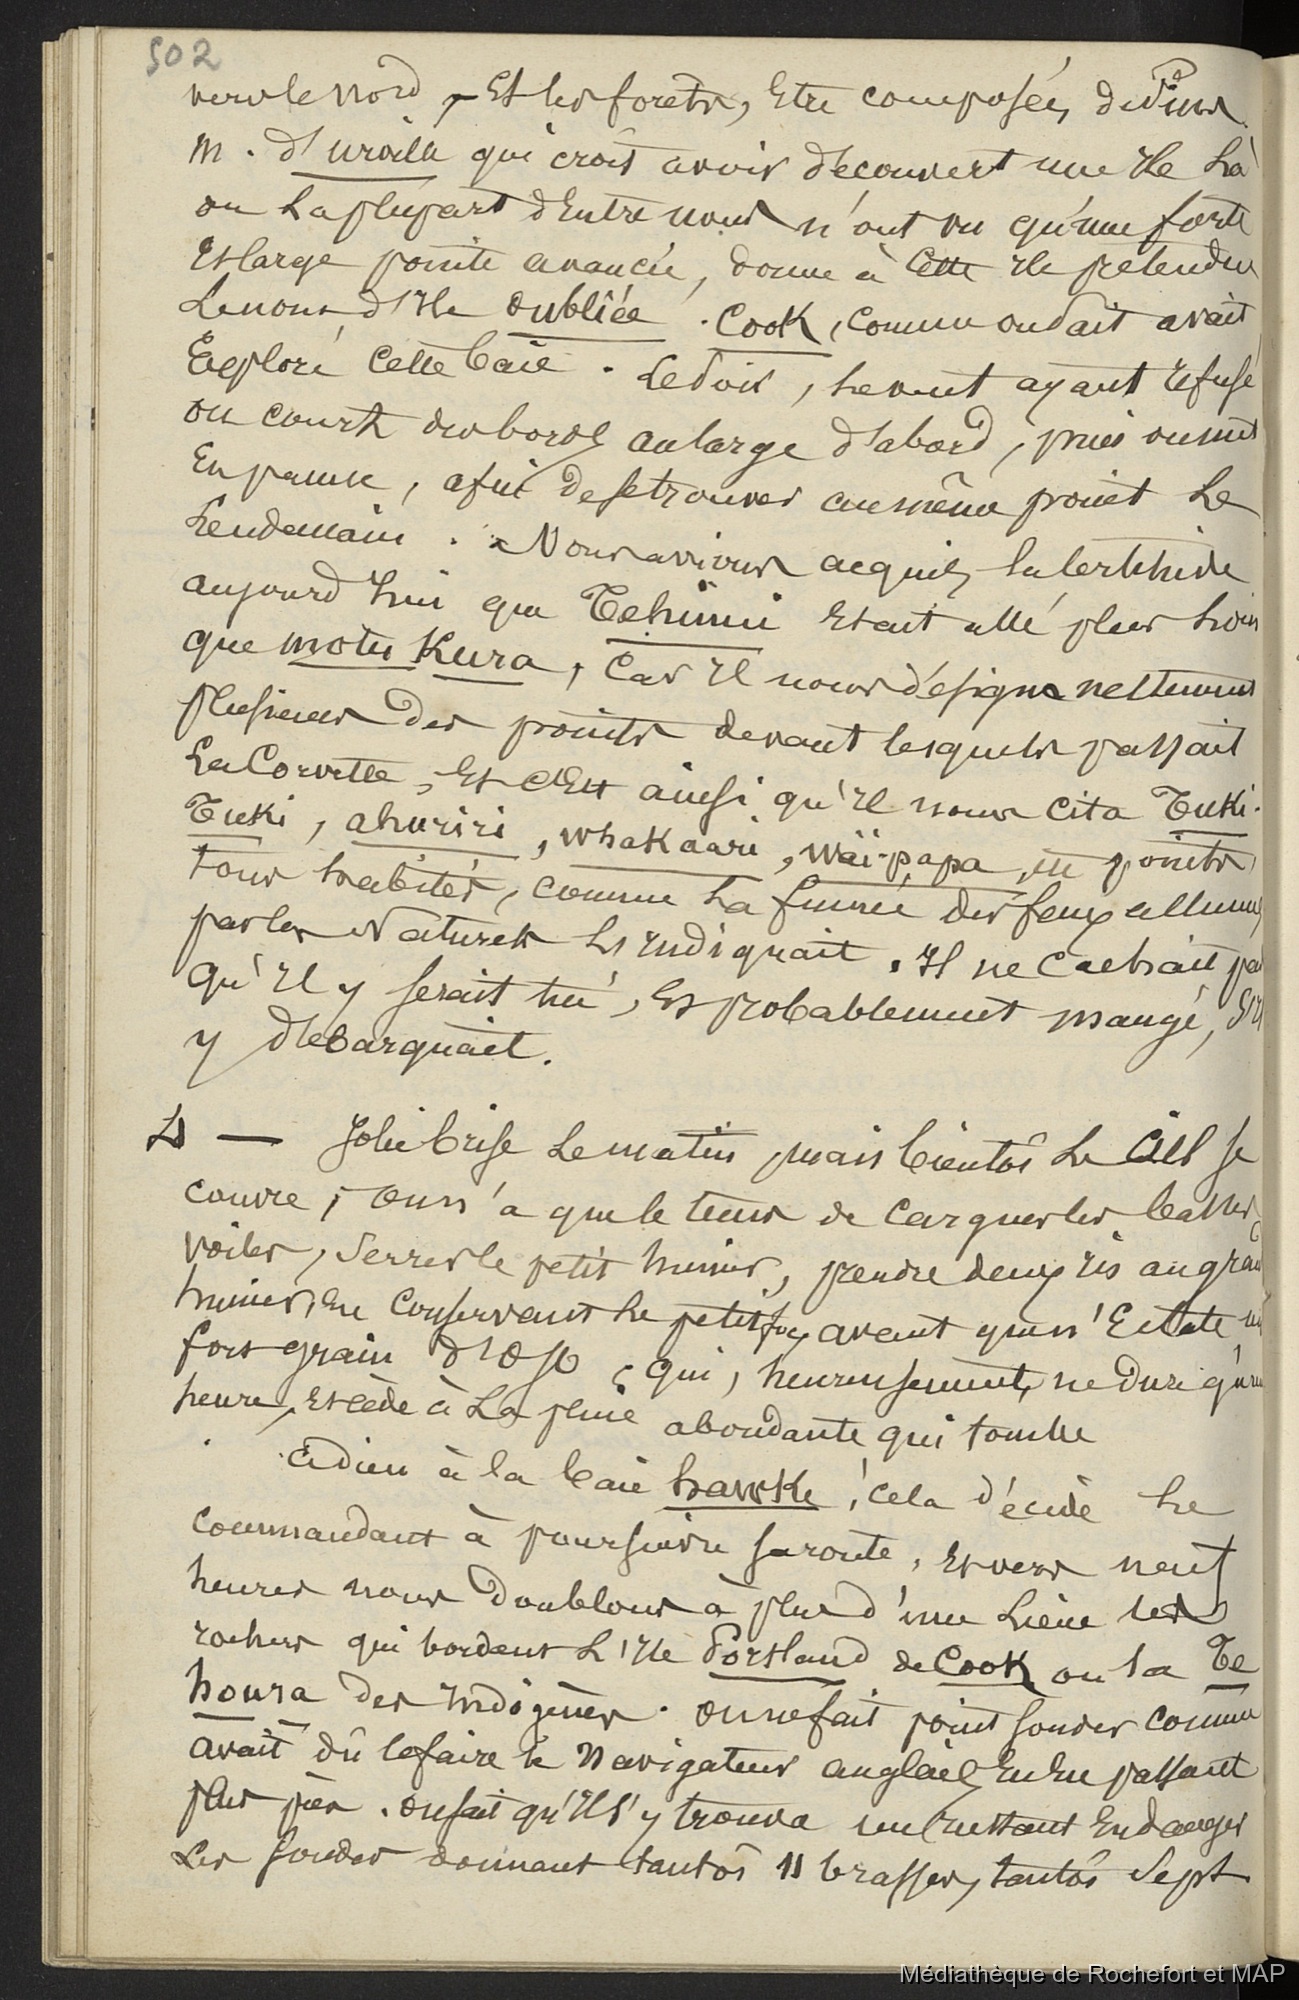 502
vers le nord, et les forets, Etre composées de Pins.
M. d'urvila qui croit avoir découvert une Ile là
ou La plupart d'Entre nous n'ont vu qu'une forte
Et large pointe avancée, donne à Cette Ile prétendue
Le nom d'Ile oubliée. Cook, comme on sait avait
Exploré Cette baie. Le soir, le vent ayant refusé
on courut des bords au large d'abord, puis on mit
En panne, afin de se trouver au même point Le
Lendemain. Nous avions acquis la Certitude
aujourd'hui que Tehinui Etait allé plus loin
que motu Kura, Car Il nous désigna nettement
plusieurs des points devant lesquels passait
La Corvette, Et c'Est ainsi qu'Il nous cita Tuki-
Tuki, ahuriri, whakaari, wäi-papa, points
tous habités, comme La fumée des feux allumés
par les Naturels Les Indiquait. Il ne cachait pas
qu'Il y serait tué, Et probablement mangé, S'Il
y débarquait.
4 — Jolie brise Le matin, mais bientôt Le Ciel se
couvre, On n'a que le tems de Carguer les basses
voiles, Serrer le petit hunier, prendre deux ris au grand
hunier, En Conservant Le petit foc, avant que n'Eclate un
fort grain d'OSO, qui, heureusement, ne dure qu'une
heure, Et cède à La pluie abondante qui tombe
adieu à la baie hawke, Cela décide Le
commandant à poursuivre sa route, Et vers neuf
heures nous doublons à plus d'une Lieue les
rochers qui bordent L'Ile Portland de Cook ou la Te
houra des Indigènes. On ne fait point sonder comme
avait dû le faire le Navigateur anglais En En passant
plus près. On sait qu'Il s'y trouva un Instant En danger
Les sondes donnant tantôt 11 brasses, tantôt Sept
Médiathèque de Rochefort et MAP